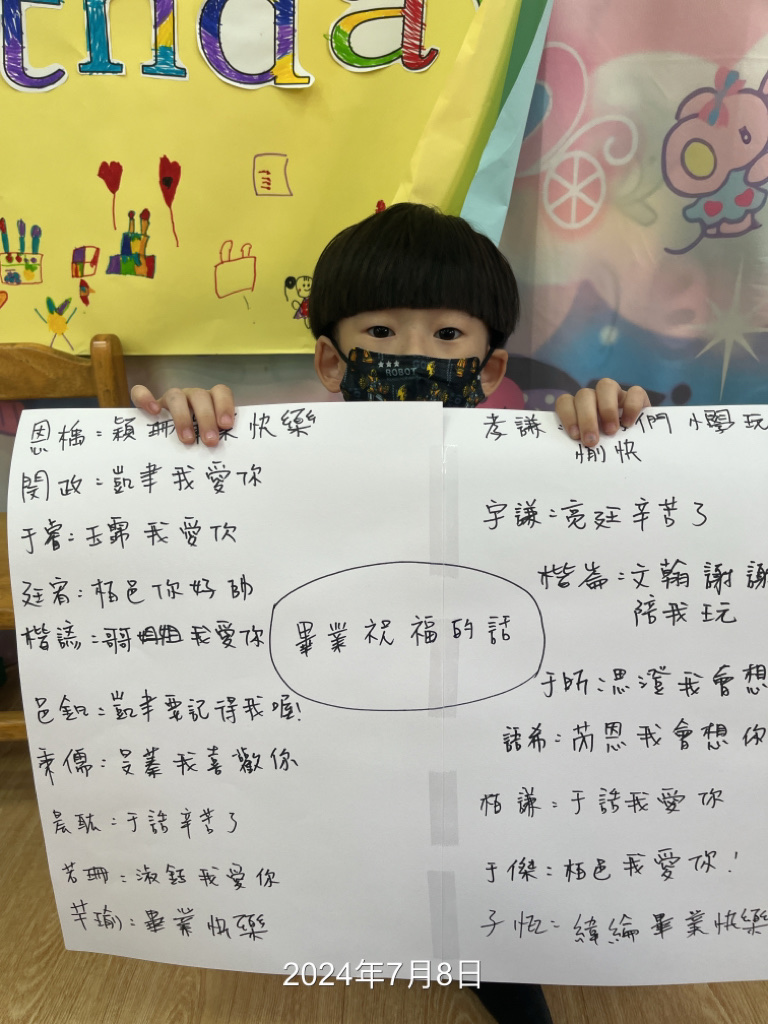 nda
ROBOT
恩橋：穎珊 業快樂
閔政：凱聿我愛你
于睿：玉霈我愛你
廷宥：栢邑你好帥
楷諺：哥姐姐我愛你
邑釦：凱聿要記得我喔！
秉儒：旻蓁我喜歡你
晨駩：于語辛苦了
若珊：淑鈺我愛你
芊瑜：畢業快樂
畢業祝福的話
孝謙： 們 學玩
愉快
宇謙：亮廷辛苦了
楷崙：文翰謝謝
陪我玩
于昕：思澄我會想
語希：芮恩我會想你
栢謙：于語我愛你
于傑：栢邑我愛你！
子恆：緯綸畢業快樂
2024年7月8日